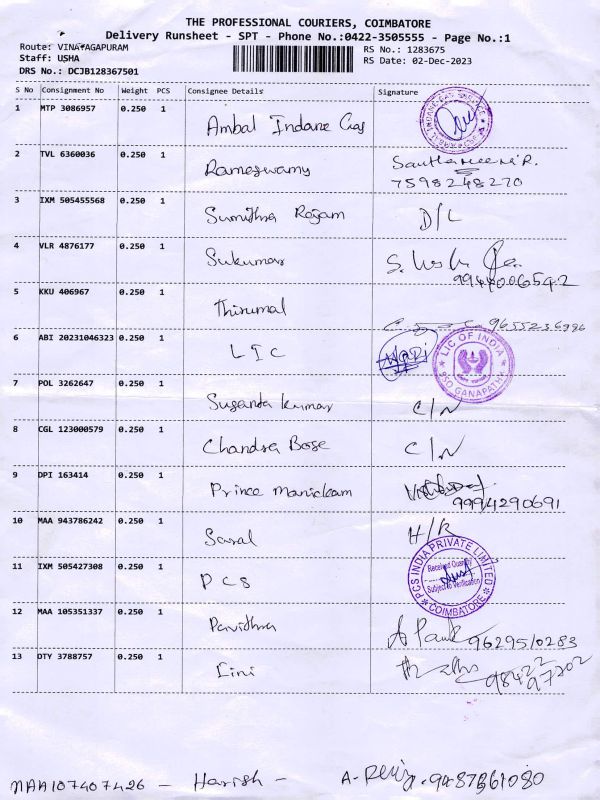 THE PROFESSIONAL COURIERS, COIMBATORE
Delivery Runsheet - SPT - Phone No.:0422-3505555 - Page No.:1
Route: VINAYAGAPURAM
RS No.: 1283675
Staff: USHA
RS Date: 02-Dec-2023
DRS No.: DCJB128367501
S No Consignment No Weight PCS Consignee Details Signature
1 MTP 3086957 0.250 1 Ambal Indane Gas
2 TVL 6360036 0.250 1 Rameswamy
7598248270
3 IXM 505455568 0.250 1 Sumithra Rajam D/L
4 VLR 4876177 0.250 1 Sukumar
9944006542
5 KKU 406967 0.250 1 Thirumal
9655236996
6 ABI 20231046323 0.250 1 LIC
LIC OF INDIA
SO GANAPATHY
7 POL 3262647 0.250 1 Suganta kumar C/N
8 CGL 123000579 0.250 1 Chandra Bose C/N
9 DPI 163414 0.250 1 Prince manickam
9994290691
10 MAA 943786242 0.250 1 Saral H/R
11 IXM 505427308 0.250 1 PCS
PCS INDIA PRIVATE LIMITED
Received Quantity
Subject to Verification
COIMBATORE
12 MAA 105351337 0.250 1 Pavithra
9629510283
13 DTY 3788757 0.250 1 Lini
98422
97202
MAA107407426 - Harish - 9487861080